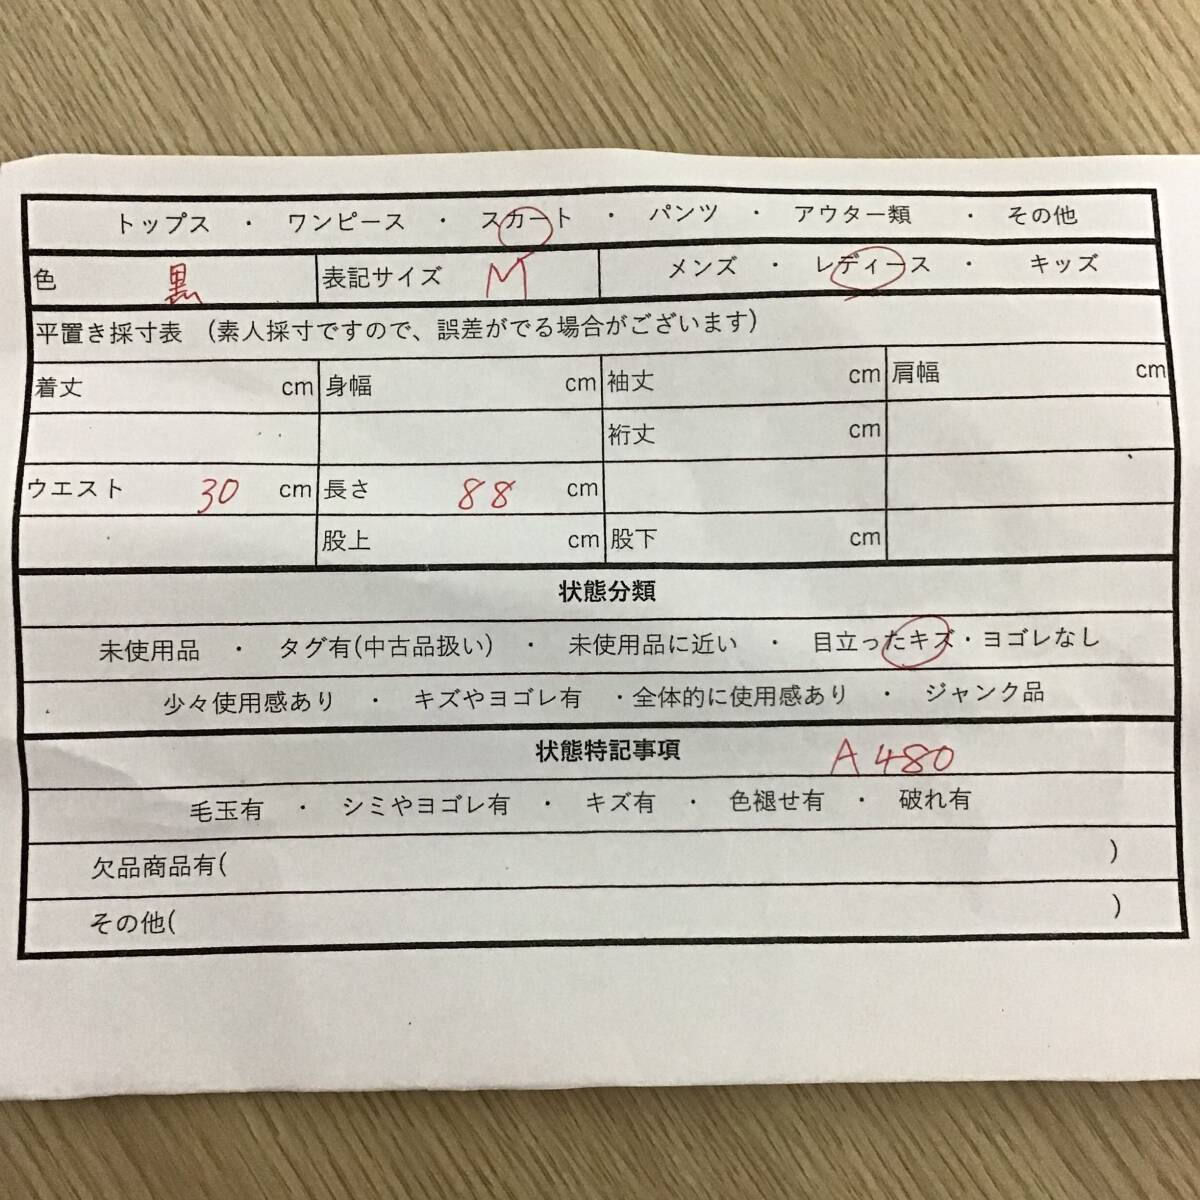 トップス ・ ワンピース ・ スカート ・ パンツ ・ アウター類 ・ その他
色 黒 表記サイズ M メンズ ・ レディース ・ キッズ
平置き採寸表 (素人採寸ですので、誤差がでる場合がございます)
着丈 cm 身幅 cm 袖丈 cm 肩幅 cm
裄丈 cm
ウエスト 30 cm 長さ 88 cm
股上 cm 股下 cm
状態分類
未使用品 ・ タグ有(中古品扱い) ・ 未使用品に近い ・ 目立ったキズ・ヨゴレなし
少々使用感あり ・ キズやヨゴレ有 ・全体的に使用感あり ・ ジャンク品
状態特記事項 A480
毛玉有 ・ シミやヨゴレ有 ・ キズ有 ・ 色褪せ有 ・ 破れ有
欠品商品有( )
その他( )